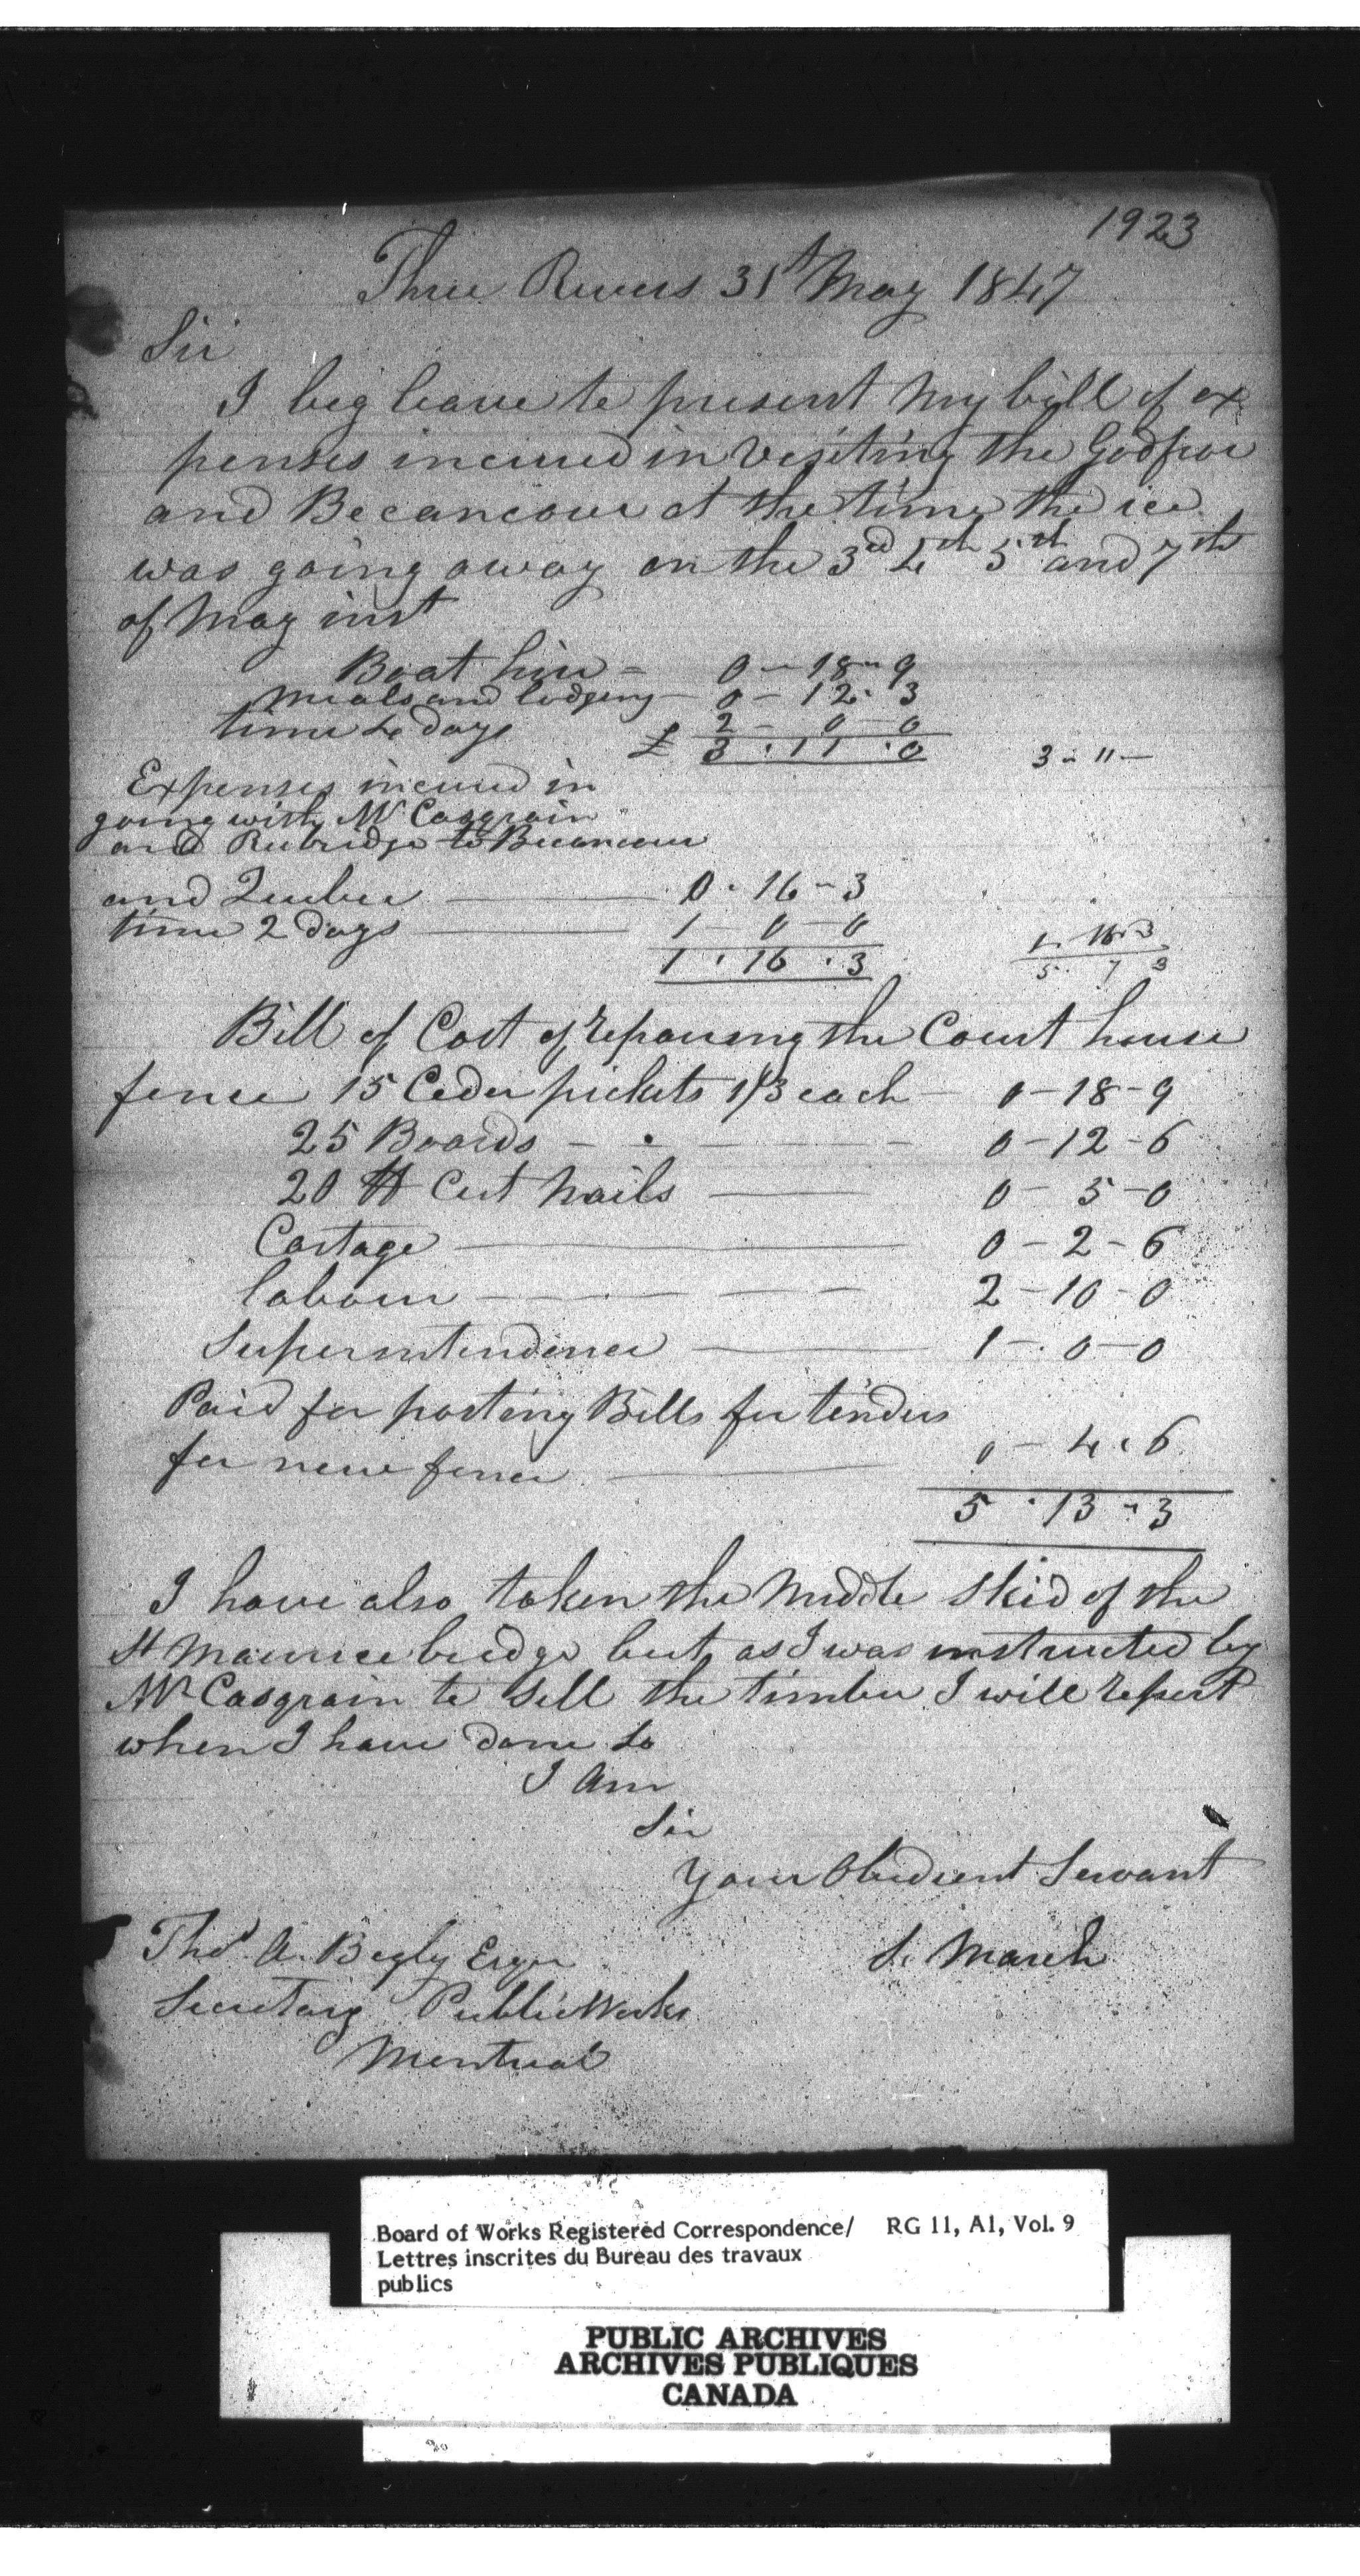 1923
Three Rivers 31st May 1847
Sir
I beg leave to present my bill of ex
penses incured in Visiting the Godfroi
and Becancour at the time the ice
was going away on the 3rd 4th 5th and 7th
of May inst
Boat hire - 0 - 18 - 9
Meals and lodging - 0 - 12 - 3
time 4 days 2 - 0 - 0
£ 3 . 11 . 0 3 - 11 -
Expenses incured in
going with Mr Casgrain
and Rubridge to Becancour
and Quebec 0 - 16 - 3
time 2 days 1 - 0 - 0 1 . 16 . 3
1 . 16 . 3 5 . 7 3
Bill of Cost of repairing the Court house
fence 15 Ceder pickets 1/3 each - 0 - 18 - 9
25 Boards - 0 - 12 - 6
20 lb Cut nails 0 - 5 - 0
Cartage 0 - 2 - 6
labour 2 - 10 - 0
Superintendence 1 - 0 - 0
Paid for posting Bills for tenders
for new fence 0 - 4 . 6
5 . 13 - 3
I have also taken the Middle Skid of the
St Maurice bridge but as I was instructed by
Mr Casgrain to sell the timber I will report
when I have done so
I Am
Sir
Your Obedient Servant
Thos A. Begly Esqr S. March
Secretary Public Works
Montreal
Board of Works Registered Correspondence/ RG 11, A1, Vol. 9
Lettres inscrites du Bureau des travaux
publics
PUBLIC ARCHIVES
ARCHIVES PUBLIQUES
CANADA